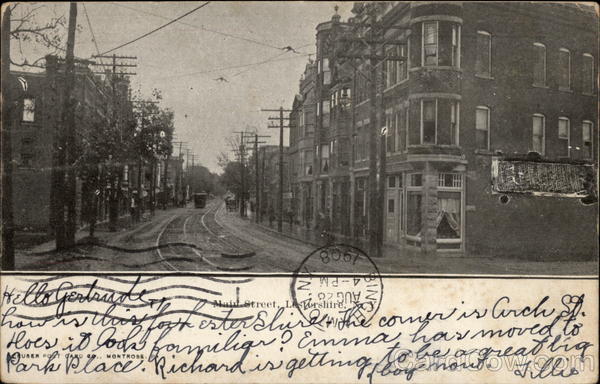 Hello Gertrude,
Main Street, Lestershire, N.Y.
how is this for Lestershire, the corner is Arch St.
Does it look familiar? Emma has moved to
Park Place. Richard is getting to be a great big
boy now. Nellie
BINGHAMTON, N.Y.
AUG 26
4-PM
1908
POST CARD CO., MONTROSE
CardCow.com